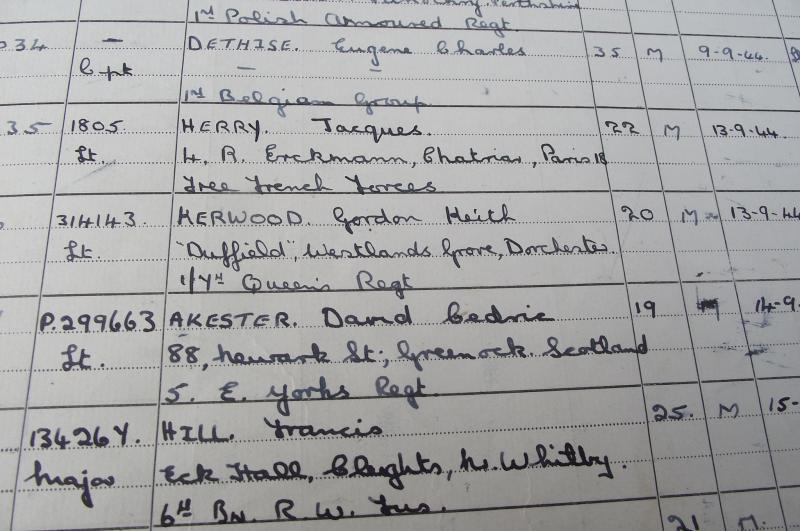 1st Polish Armoured Regt.
034 — DETHISE. Eugene Charles 35 M 9-9-44.
Cpt — —
1st Belgian Group
35 1805. HERRY. Jacques. 22 M 13-9-44.
Lt. 4, R. Erckmann, Chatrian, Paris 18
Free French Forces
314143. HERWOOD. Gordon Keith 20 M 13-9-44
Lt. "Duffield" Westlands Grove, Dorchester.
1/7th Queen's Regt
P.299663 AKESTER. David Cedric 19 M 14-9.
Lt. 88, Newark St; Greenock. Scotland
5. E. Yorks Regt.
13426Y. HILL. Francis 25. M 15-
Major Eck Hall, Nr. Whitby.
6th Bn. R. W. Fus. 21 M.